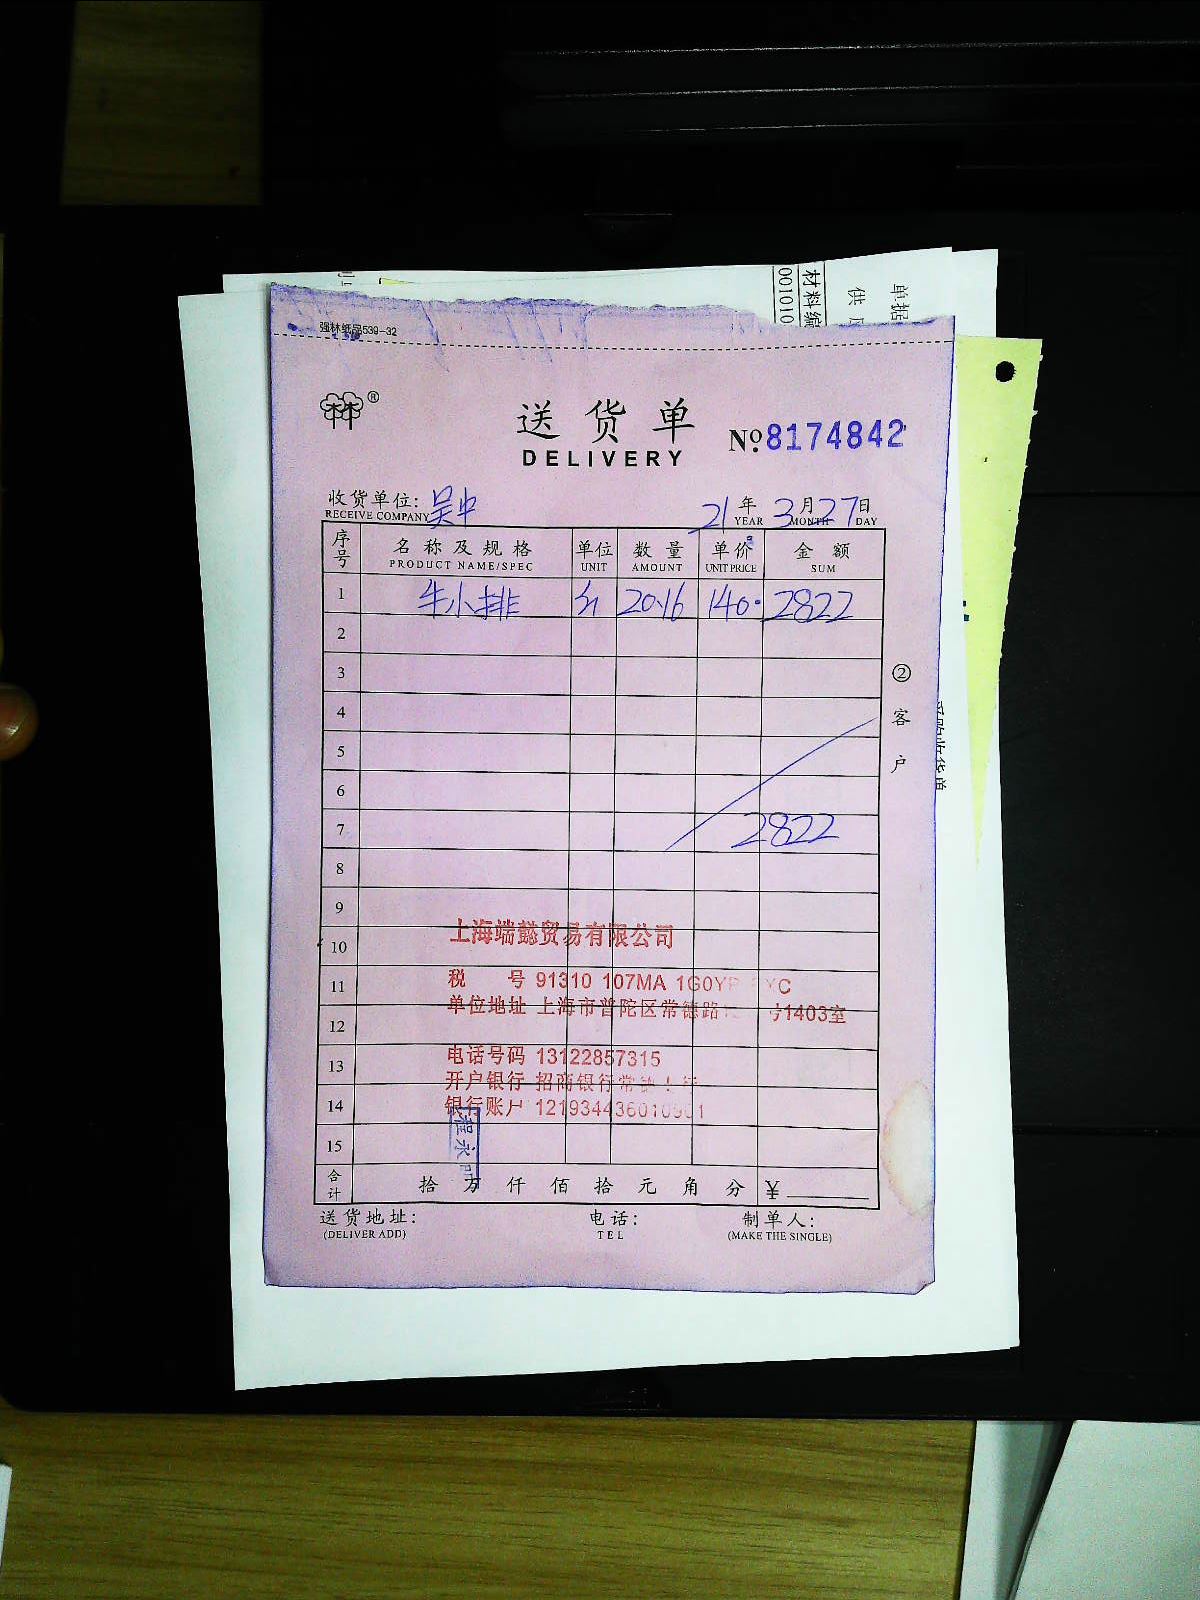 材料编
001010
供
单据
强林纸品539-32
®
送货单
DELIVERY
№8174842
收货单位: 吴中
RECEIVE COMPANY
21年3月27日
YEAR MONTH DAY
序号 名称及规格 单位 数量 单价 金额
PRODUCT NAME/SPEC UNIT AMOUNT UNIT PRICE SUM
1 牛小排 20.16 140. 2822
2
3
4
5
6
7 2822
8
9
10
11
12
13
14
15
②客户
上海端懿贸易有限公司
税 号 91310 107MA 1G0YP YC
单位地址 上海市普陀区常德路 号1403室
电话号码 13122857315
开户银行 招商银行常
银行账户 121934436010901
程永
合计 拾万仟佰拾元角分 ¥
送货地址: 电话: 制单人:
(DELIVER ADD) TEL (MAKE THE SINGLE)